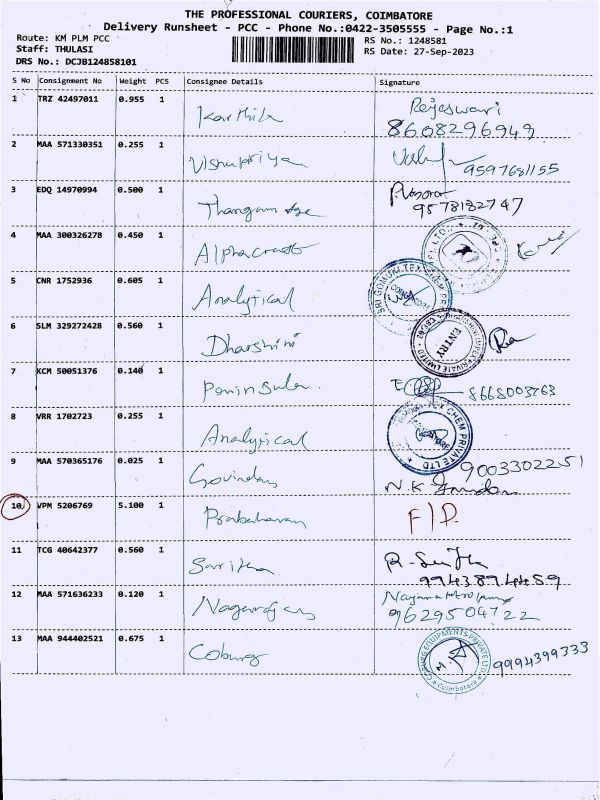 THE PROFESSIONAL COURIERS, COIMBATORE
Delivery Runsheet - PCC - Phone No.:0422-3505555 - Page No.:1
Route: KM PLM PCC
Staff: THULASI
DRS No.: DCJB124858101
RS No.: 1248581
RS Date: 27-Sep-2023
S No Consignment No Weight PCS Consignee Details Signature
1 TRZ 42497011 0.955 1 Karthik Rajeswari
8608296949
2 MAA 571330351 0.255 1 Vishnupriya 9597681155
3 EDQ 14970994 0.500 1
9578182747
4 MAA 300326278 0.450 1 Alphacraft
5 CNR 1752936 0.605 1 Analytical
6 SLM 329272428 0.560 1 Dharshini
ENTRY
7 KCM 50051376 0.140 1 Peninsula. 8668003763
8 VRR 1702723 0.255 1 Analytical
CHEM PRIVATE LTD
9 MAA 570365176 0.025 1 Govindan 9003302251
N.K
10 VPM 5206769 5.100 1 Prabaharan F/D
11 TCG 40642377 0.560 1 Saritha
9943894489
12 MAA 571636233 0.120 1 Nagarajan
9629504722
13 MAA 944402521 0.675 1 Coburg 9994399333
COBURG EQUIPMENTS PRIVATE LTD
Coimbatore